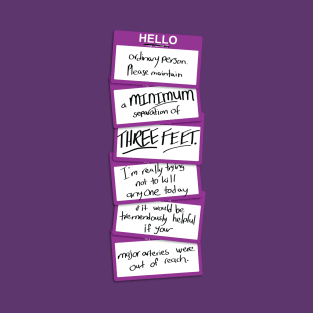 HELLO
ordinary person.
Please maintain
a MINIMUM
separation of
THREE FEET.
I'm really trying
not to kill
anyone today
& it would be
tremendously helpful
if your
major arteries were
out of reach.